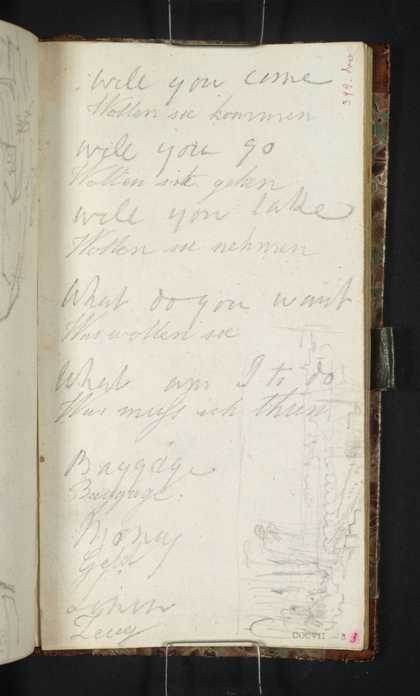 will you come
Wollen sie kommen
will you go
Wollen sie gehen
will you take
Wollen sie nehmen
What do you want
Was wollen sie
What am I to do
Was muss ich thun
Baggage
Baggage.
Money
Geld
Zeug
CCCVII - 3